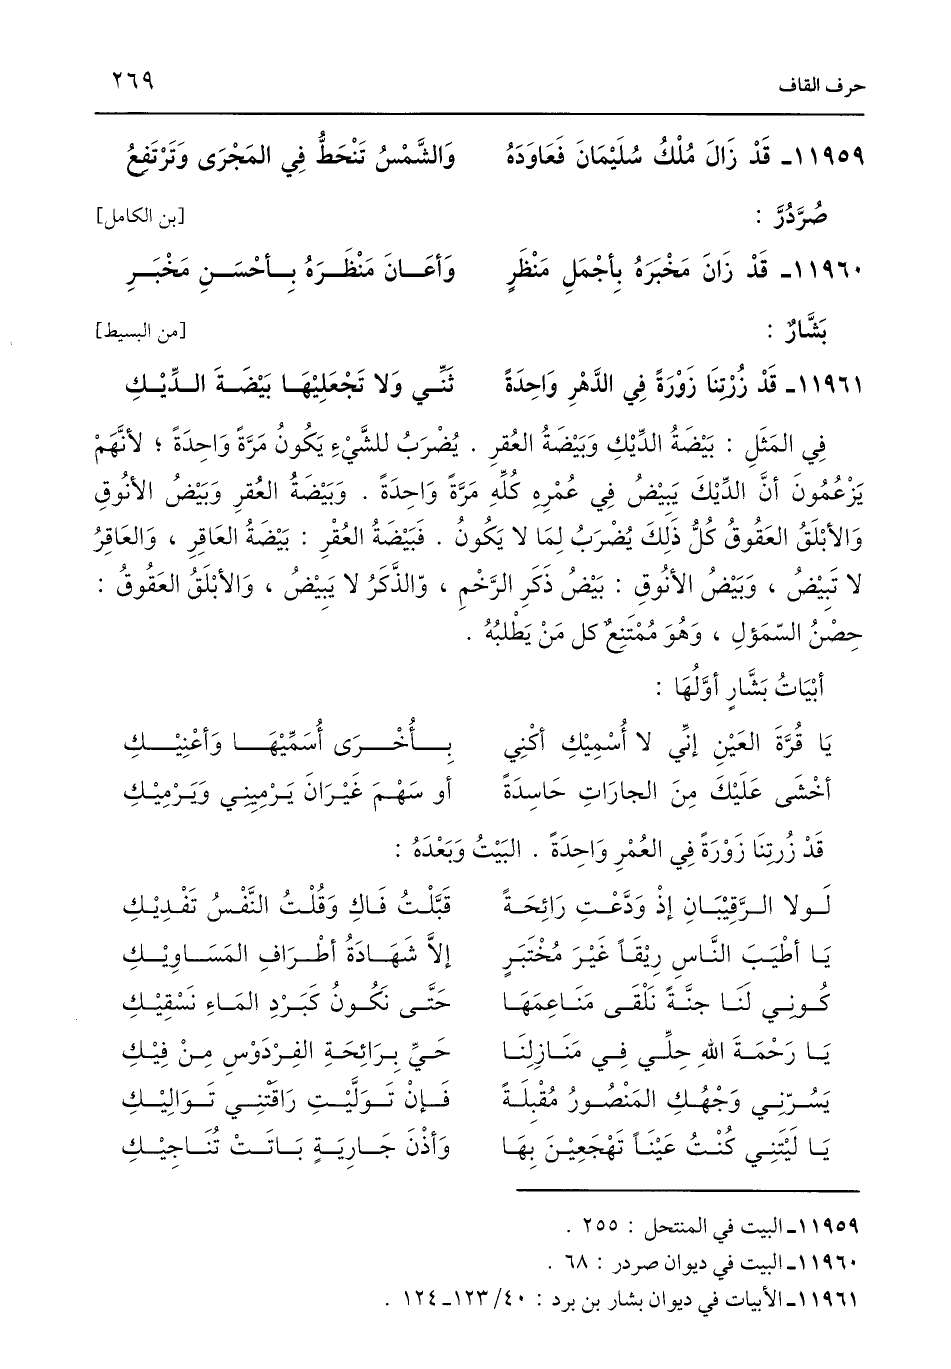 حرف القاف ٢٦٩
١١٩٥٩ـ قَدْ زَالَ مُلْكُ سُلَيْمَانَ فَعَاوَدَهُ وَالشَّمْسُ تَنْحَطُّ فِي المَجْرَى وَتَرْتَفِعُ
صُرَّدُرَّ : [بن الكامل]
١١٩٦٠ـ قَدْ زَانَ مَخْبَرَهُ بِأَجْمَلِ مَنْظَرٍ وَأَعَـانَ مَنْظَـرَهُ بِـأَحْسَـنِ مَخْبَـرِ
بَشَّارٌ : [من البسيط]
١١٩٦١ـ قَدْ زُرْتِنَا زَوْرَةً فِي الدَّهْرِ وَاحِدَةً ثَنِّي وَلا تَجْعَلِيْهَـا بَيْضَـةَ الـدِّيْـكِ
فِي المَثَلِ : بَيْضَةُ الدِّيْكِ وَبَيْضَةُ العُقرِ . يُضْرَبُ للشَّيْءِ يَكُونُ مَرَّةً وَاحِدَةً ؛ لأَنَّهُمْ
يَزْعُمُونَ أنَّ الدِّيْكَ يَبِيْضُ فِي عُمْرِهِ كُلِّهِ مَرَّةً وَاحِدَةً . وَبَيْضَةُ العُقرِ وَبَيْضُ الأنُوقِ
وَالأبْلَقُ العَقُوقُ كُلُّ ذَلِكَ يُضْرَبُ لِمَا لا يَكُونُ . فَبَيْضَةُ العُقْرِ : بَيْضَةُ العَاقِرِ ، وَالعَاقِرُ
لا تَبِيْضُ ، وَبَيْضُ الأنُوقِ : بَيْضُ ذَكَرِ الرَّخْمِ ، وّالذَّكَرُ لا يَبِيْضُ ، وَالأبْلَقُ العَقُوقُ :
حِصْنُ السّمَؤلِ ، وَهُوَ مُمْتَنِعٌ كل مَنْ يَطْلبُهُ .
أبْيَاتُ بَشَّارٍ أوَّلُهَا :
يَا قُرَّةَ العَيْنِ إنِّي لا أُسْمِيْكِ أكْنِي بِـأُخْـرَى أُسَمِّيْهَـا وَأعْنِيْـكِ
أخْشَى عَلَيْكَ مِنَ الجارَاتِ حَاسِدَةً أو سَهْمَ غَيْرَانَ يَـرْمِيني وَيَـرْمِيْـكِ
قَدْ زُرتِنَا زَوْرَةً فِي العُمْرِ وَاحِدَةً . البَيْتُ وَبَعْدَهُ :
لَـولا الـرَّقِيْبَـانِ إذْ وَدَّعْـتِ رَائِحَـةً قَبَّلْـتُ فَـاكِ وَقُلْـتُ النَّفْـسُ تَفْـدِيْـكِ
يَـا أطْيَـبَ النَّـاسِ رِيْقَـاً غَيْـرَ مُخْتَبَرٍ إلاَّ شَهَـادَةُ أطْـرَافِ المَسَـاوِيْـكِ
كُـونِـي لَنَـا جنَّـةً نَلْقَـى مَنَـاعِمَهَـا حَتَّـى نَكُـونُ كَبَـرْدِ المَـاءِ نَسْقِيْـكِ
يَـا رَحْمَـةَ اللهِ حِلِّـي فِـي مَنَـازِلِنَـا حَيِّ بِـرَائِحَـةِ الفِـرْدَوْسِ مِـنْ فِيْـكِ
يَسُـرّنِـي وَجْهُـكِ المَنْصُـورُ مُقْبِلَـةً فَـإنْ تَـوَلَّيْـتِ رَاقَتْنِـي تَـوَالِيْـكِ
يَـا لَيْتَنِـي كُنْـتُ عَيْنَـاً تَهْجَعِيْـنَ بِهَـا وَأذْنَ جَـارِيَـةٍ بَـاتَـتْ تُنَـاجِيْـكِ
١١٩٥٩ـ البيت في المنتحل : ٢٥٥ .
١١٩٦٠ـ البيت في ديوان صردر : ٦٨ .
١١٩٦١ـ الأبيات في ديوان بشار بن برد : ٤٠ /١٢٣ـ ١٢٤ .